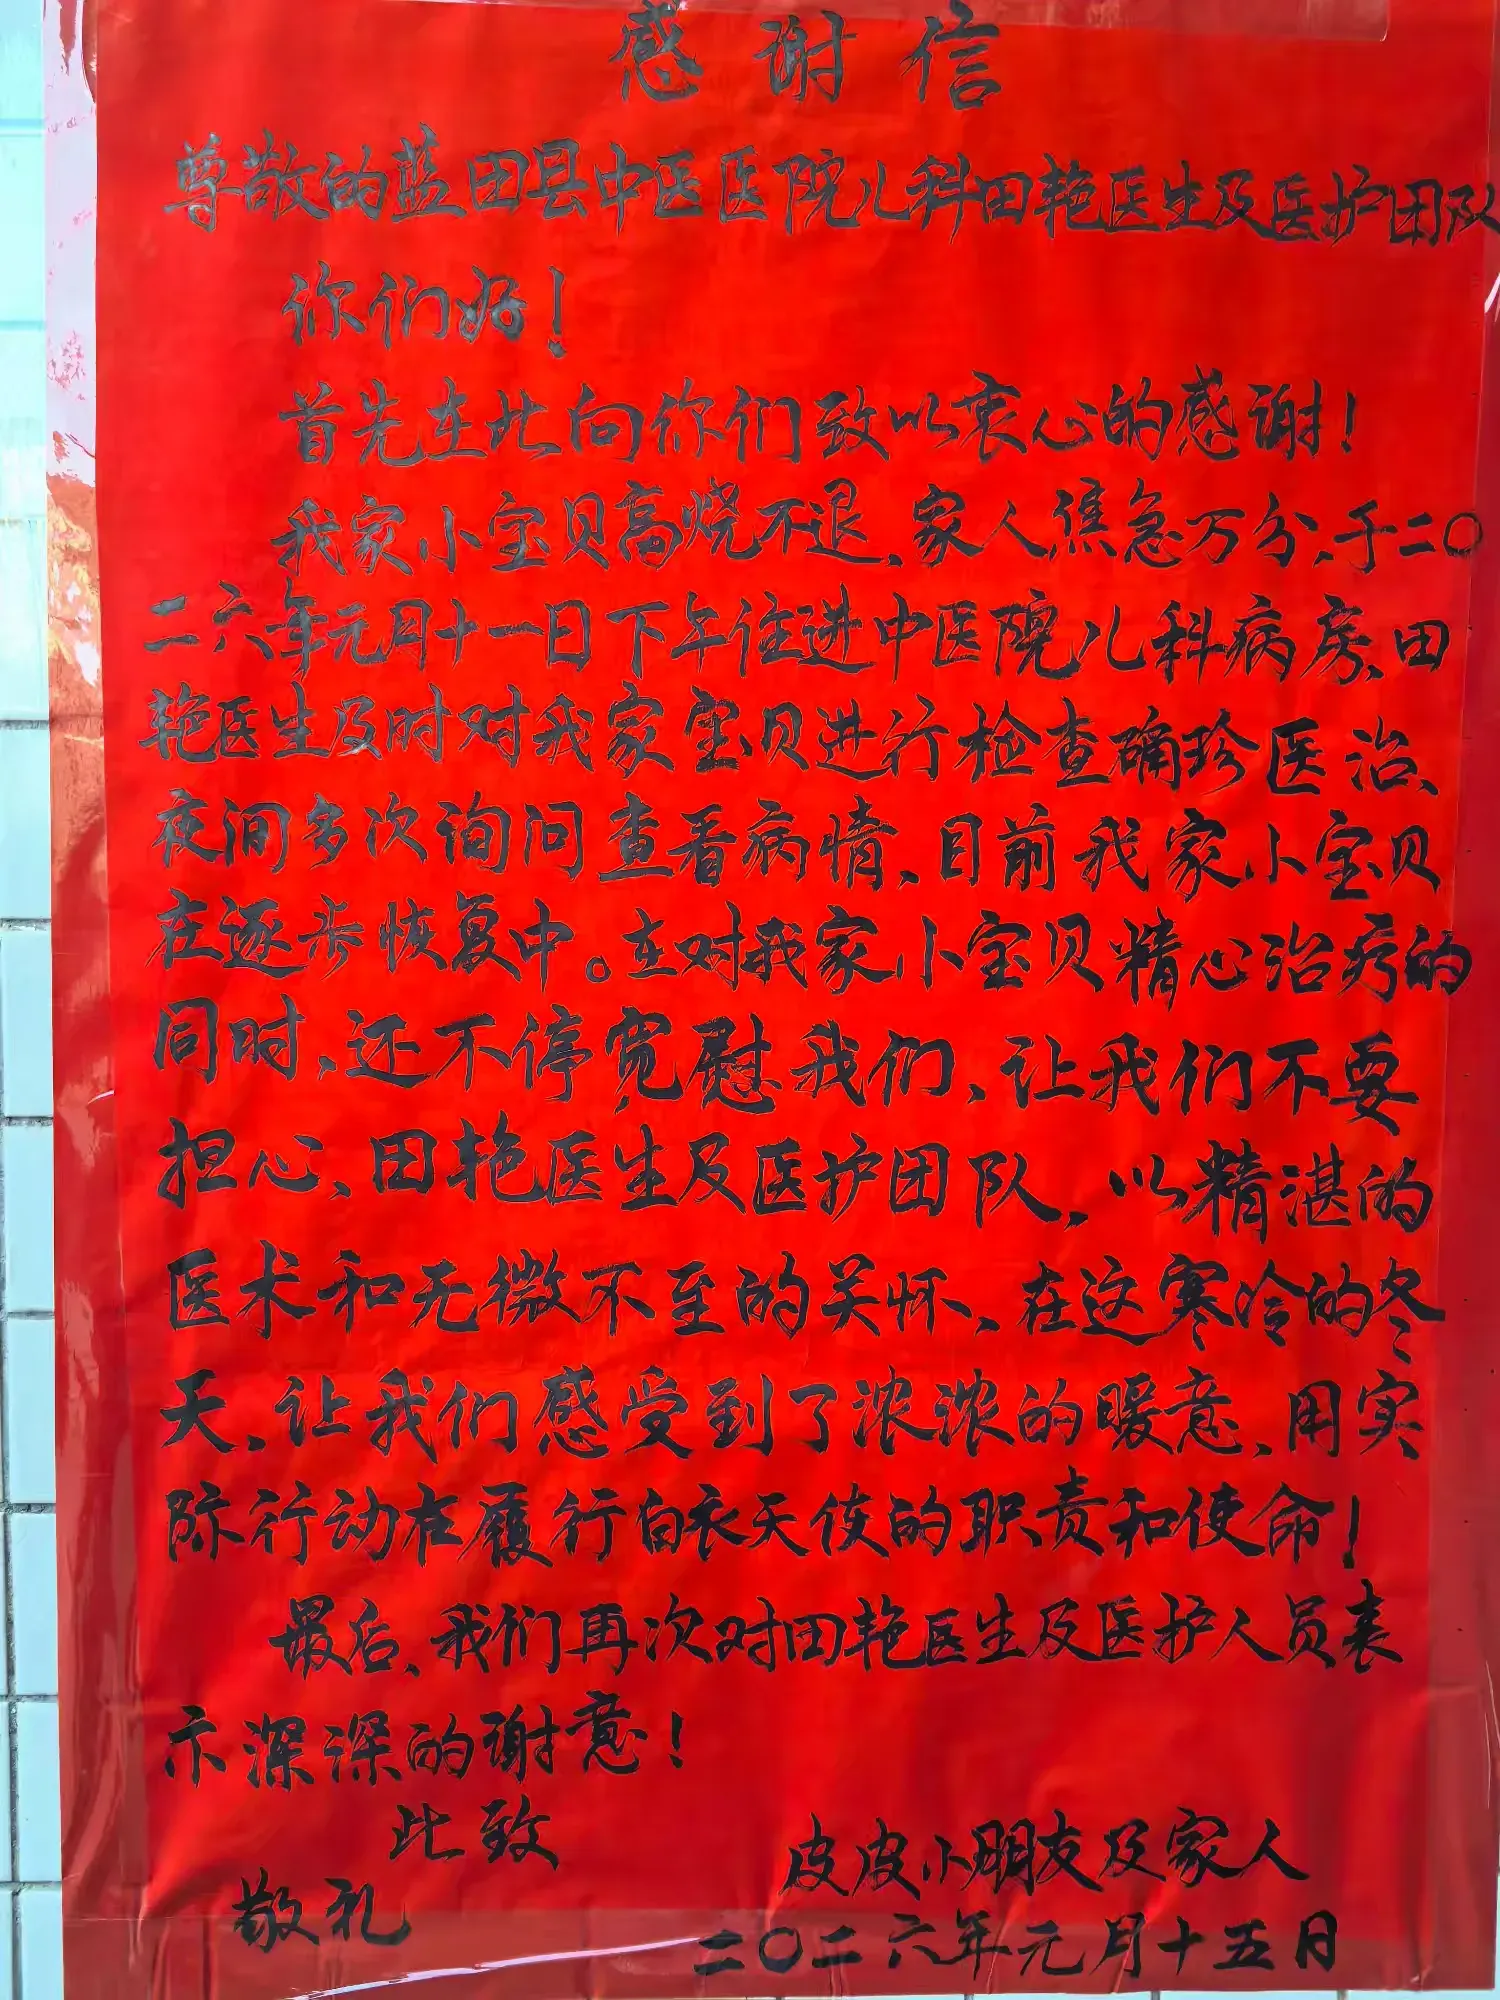 感谢信
尊敬的蓝田县中医医院儿科田艳医生及医护团队
你们好！
首先在此向你们致以衷心的感谢！
我家小宝贝高烧不退、家人焦急万分、于二〇
二六年元月十一日下午住进中医院儿科病房、田
艳医生及时对我家宝贝进行检查确珍医治、
夜间多次询问查看病情、目前我家小宝贝
在逐步恢复中。在对我家小宝贝精心治疗的
同时、还不停宽慰我们、让我们不要
担心、田艳医生及医护团队，以精湛的
医术和无微不至的关怀、在这寒冷的冬
天，让我们感受到了浓浓的暖意、用实
际行动在履行白衣天使的职责和使命！
最后、我们再次对田艳医生及医护人员表
示深深的谢意！
此致
敬礼
皮皮小朋友及家人
二〇二六年元月十五日